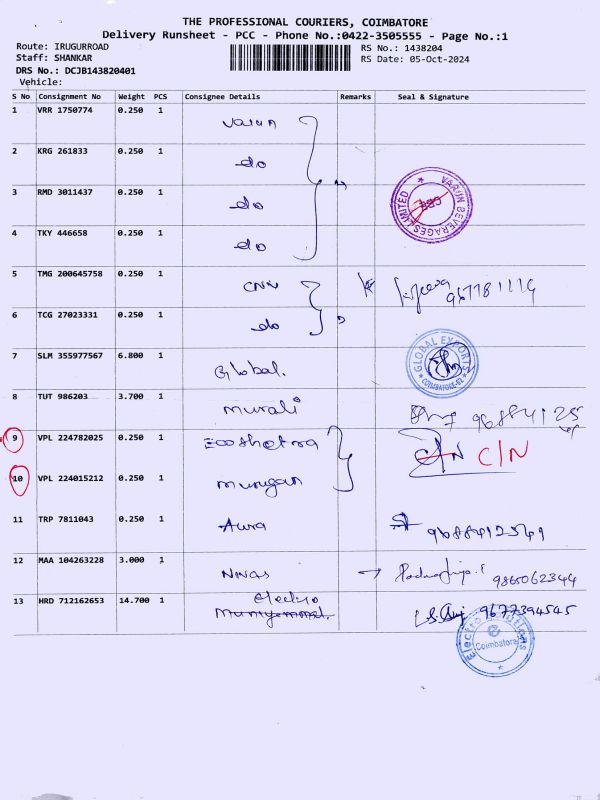 THE PROFESSIONAL COURIERS, COIMBATORE
Delivery Runsheet - PCC - Phone No.:0422-3505555 - Page No.:1
Route: IRUGURROAD RS No.: 1438204
Staff: SHANKAR RS Date: 05-Oct-2024
DRS No.: DCJB143820401
Vehicle:
S No Consignment No Weight PCS Consignee Details Remarks Seal & Signature
1 VRR 1750774 0.250 1 Varun
2 KRG 261833 0.250 1 do
3 RMD 3011437 0.250 1 do
VARUN BEVERAGES LIMITED
4 TKY 446658 0.250 1 do
5 TMG 200645758 0.250 1 CNN
6 TCG 27023331 0.250 1 do
7 SLM 355977567 6.800 1 Global.
GLOBAL EXPORTS COIMBATORE-62
8 TUT 986203 3.700 1 Murali
9 VPL 224782025 0.250 1
C/N C/N
10 VPL 224015212 0.250 1 Murugan
11 TRP 7811043 0.250 1 Aura
12 MAA 104263228 3.000 1 9865062344
13 HRD 712162653 14.700 1 Electro 9677394545
Coimbatore